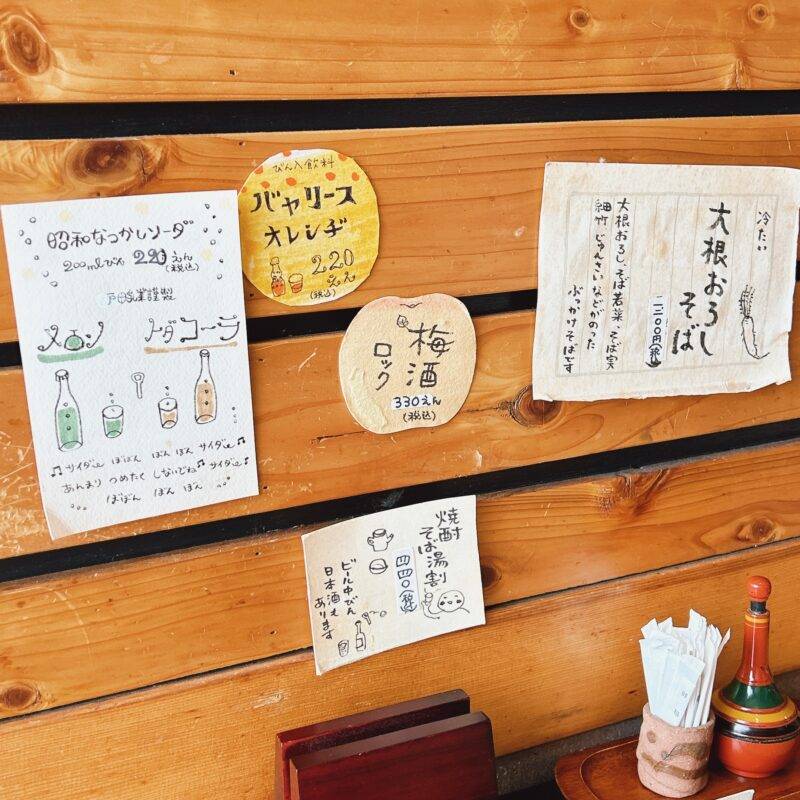 昭和なつかしソーダ
200mlびん 220えん
(税込)
戸田乳業謹製
メロン
トダコーラ
♫サイダー ぼばん ぼん ぼん サイダー♫
あんまり つめたく しないでね♫サイダー♪
ぼばん ぼん ぼん
びん入飲料
バャリース
オレンヂ
220
えん
(税込)
梅酒
ロック
330えん
(税込)
冷たい
大根おろし
そば
一二〇〇円(税込)
大根おろし、そば若菜、そば実
細竹 じゅんさいなどがのった
ぶっかけそばです
焼酎
そば湯割
四四〇(税込)
ビール中びん
日本酒も
あります